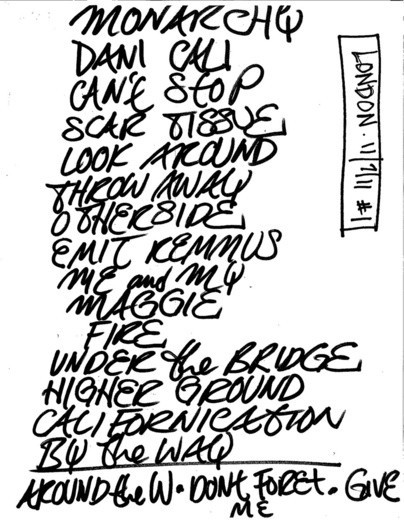 MONARCHY
DANI CALI
CAN'T STOP
SCAR TISSUE
LOOK AROUND
THROW AWAY
OTHERSIDE
EMIT REMMUS
ME and MY
MAGGIE
FIRE
UNDER the BRIDGE
HIGHER GROUND
CALIFORNICATION
BY the WAY
AROUND the W • DONT FORET • GIVE
ME
LONDON • 11/7/11 #1